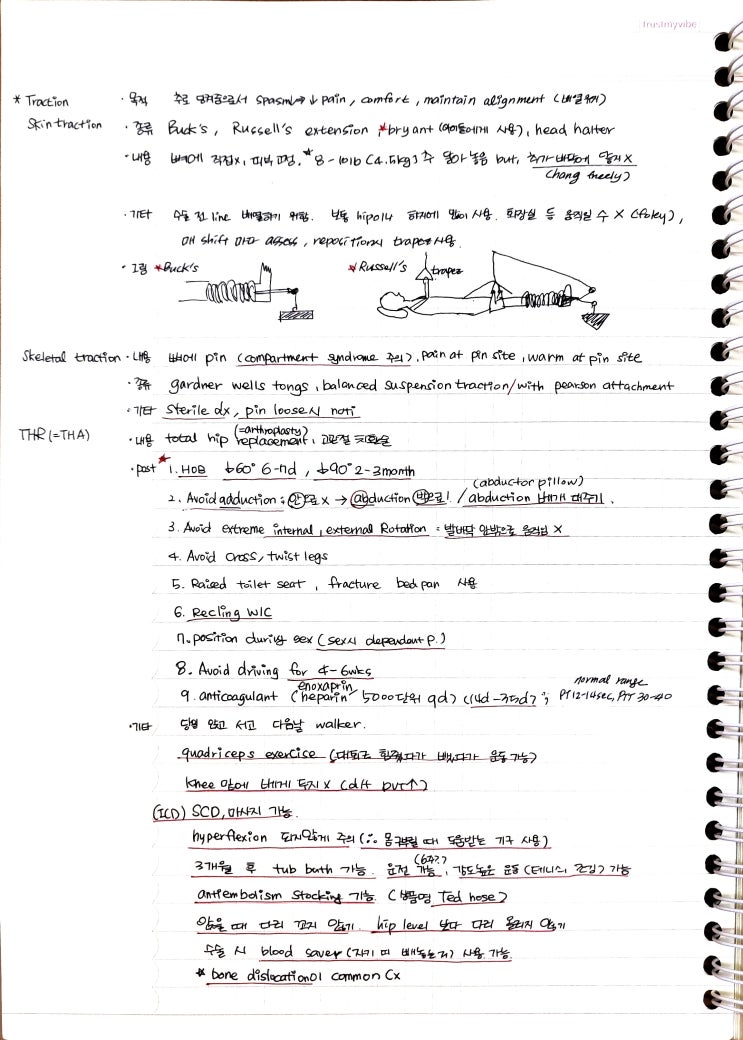 trustmyvibe
* Traction · 목적 주로 당겨줌으로서 spasm↓ → ↓ pain, comfort, maintain alignment (배열유지)
Skin traction · 종류 Buck's, Russell's extension, *bryant (아이들에게 사용), head halter
· 내용 뼈에 직접x, 피부고정, *8-10lb (4.5kg) 추 달아 놓음 but, 추가 바닥에 닿지 X
(hang freely)
· 기타 수술 전 line 배열하기 위함. 보통 hip이나 하지에 많이 사용. 화장실 등 움직일 수 X (foley),
매 shift 마다 assess, reposition시 trapez 사용.
· 그림 *Buck's *Russell's trapez
Skeletal traction · 내용 뼈에 pin (compartment syndrome 주의), pain at pin site, warm at pin site
· 종류 gardner wells tongs, balanced suspension traction/with pearson attachment
· 기타 Sterile dx, pin loose시 noti
(=arthroplasty)
THR (=THA) · 내용 total hip replacement, 고관절 치환술
· post * 1. HOB ↓60° 6-7d, ↓90° 2-3month
(abductor pillow)
2. Avoid adduction; 안으로 x → abduction 밖으로! / abduction 베개 대주기.
3. Avoid extreme internal, external Rotation = 발바닥 안밖으로 움직임 X
4. Avoid cross, twist legs
5. Raised toilet seat, fracture bed pan 사용
6. Recling W/C
7. position during sex (sex시 dependant p.)
8. Avoid driving for 4-6wks
enoxaprin normal range
9. anticoagulant (heparin 5000단위 qd) (14d-35d); PT 12-14sec, PTT 30-40
· 기타 당일 앉고 서고 다음날 walker.
quadriceps exercise (대퇴근 힘줬다가 뺐다가 운동 가능)
knee 밑에 베게 두지 X (d/t DVT↑)
(ICD) SCD, 마사지 가능.
hyperflexion 되지않게 주의 (∴ 몸구부릴 때 도움받는 기구 사용)
(6주?)
3개월 후 tub bath 가능. 운전 가능, 강도높은 운동 (테니스, 조깅) 가능
antiembolism stocking 가능 (상품명 Ted hose)
앉을 때 다리 꼬지 않기. hip level 보다 다리 올리지 않기
수술 시 blood saver (자기 피 빼놓는거) 사용 가능.
* bone dislocation이 common Cx